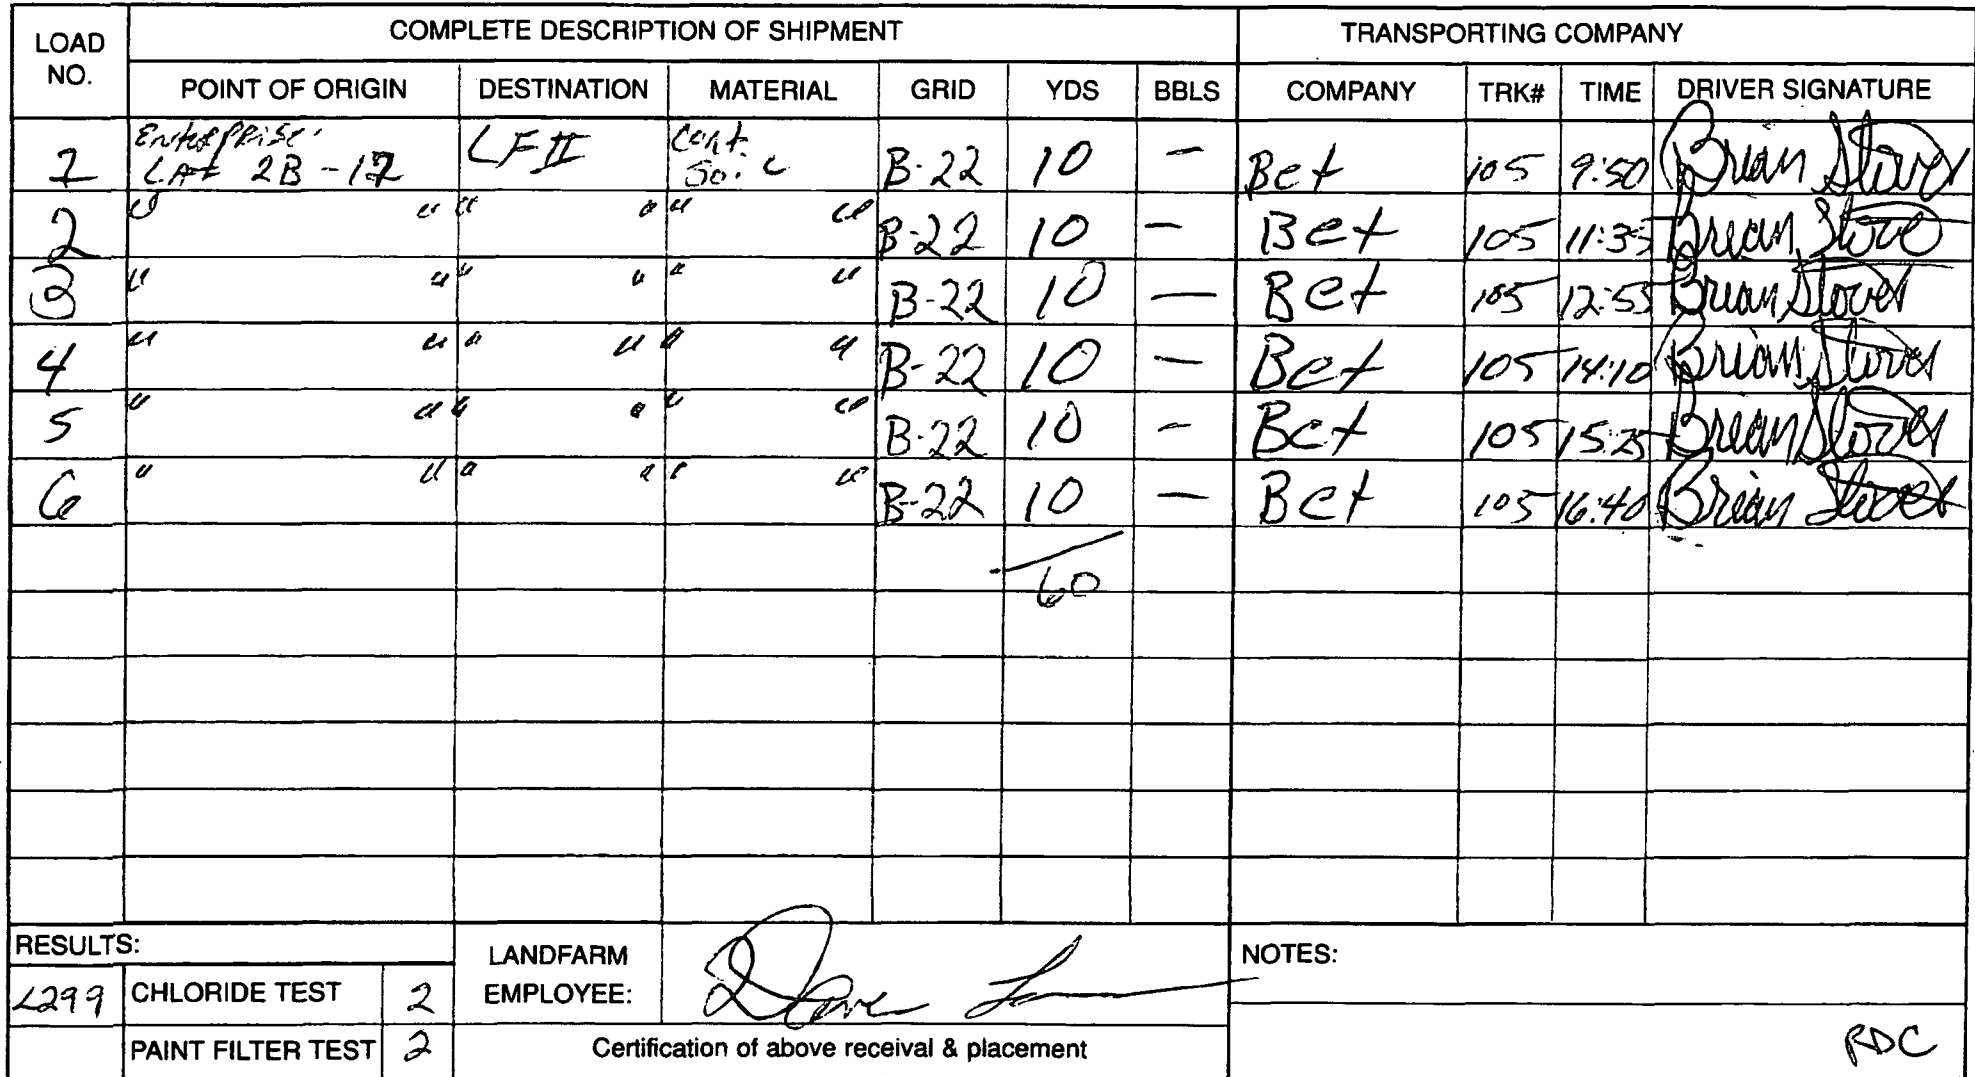 LOAD NO. COMPLETE DESCRIPTION OF SHIPMENT TRANSPORTING COMPANY
POINT OF ORIGIN DESTINATION MATERIAL GRID YDS BBLS COMPANY TRK# TIME DRIVER SIGNATURE
1 Enterprise LAt 2B-17 LF II Cont. Soil B-22 10 — Bet 105 9:50 Brian Stover
2 " " " " " " B-22 10 — Bet 105 11:35 Brian Stover
3 " " " " " " B-22 10 — Bet 105 12:55 Brian Stover
4 " " " " " " B-22 10 — Bet 105 14:10 Brian Stover
5 " " " " " " B-22 10 — Bet 105 15:25 Brian Stover
6 " " " " " " B-22 10 — Bet 105 16:40 Brian Stover
60
RESULTS: LANDFARM EMPLOYEE: NOTES:
<299 CHLORIDE TEST 2 Dave
PAINT FILTER TEST 2 Certification of above receival & placement RDC